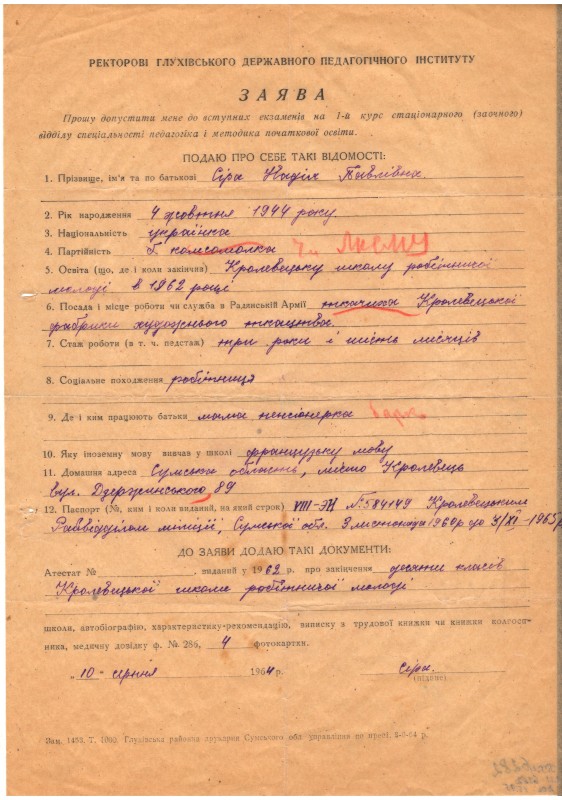 РЕКТОРОВІ ГЛУХІВСЬКОГО ДЕРЖАВНОГО ПЕДАГОГІЧНОГО ІНСТИТУТУ
ЗАЯВА
Прошу допустити мене до вступних екзаменів на 1-й курс стаціонарного (заочного)
відділу спеціальності педагогіка і методика початкової освіти.
ПОДАЮ ПРО СЕБЕ ТАКІ ВІДОМОСТІ:
1. Прізвище, ім'я та по батькові Сіра Надія Павлівна.
2. Рік народження 4 жовтня 1944 року
3. Національність українка
4. Партійність комсомолка Чл ЛКСМУ
5. Освіта (що, де і коли закінчив) Кролевецьку школу робітничої
молоді в 1962 році
6. Посада і місце роботи чи служба в Радянській Армії ткачиха Кролевецької
фабрики художнього ткацтва.
7. Стаж роботи (в т. ч. педстаж) три роки і шість місяців
8. Соціальне походження робітниця
9. Де і ким працюють батьки мама пенсіонерка
10. Яку іноземну мову вивчав у школі французьку мову
11. Домашна адреса Сумська область, місто Кролевець
вул. Дзержинського 89
12. Паспорт (№, ким і коли виданий, на який строк) VIII-ЭН №584149 Кролевецьким
Райвідділом міліції, Сумської обл. 3 листопада 1960р до 4/XI-1965р
ДО ЗАЯВИ ДОДАЮ ТАКІ ДОКУМЕНТИ:
Атестат № , виданий у 1962 р. про закінчення десяти класів
Кролевицької школи робітничої молоді
школи, автобіографію, характеристику-рекомендацію, виписку з трудової книжки чи книжки колгосп-
ника, медичну довідку ф. № 286, 4 фотокартки.
„10" серпня 1964 р. Сіра.
(підпис)
Зам. 1493, Т. 1000. Глухівська районна друкарня Сумського обл. управління по пресі. 2-3-64 р.